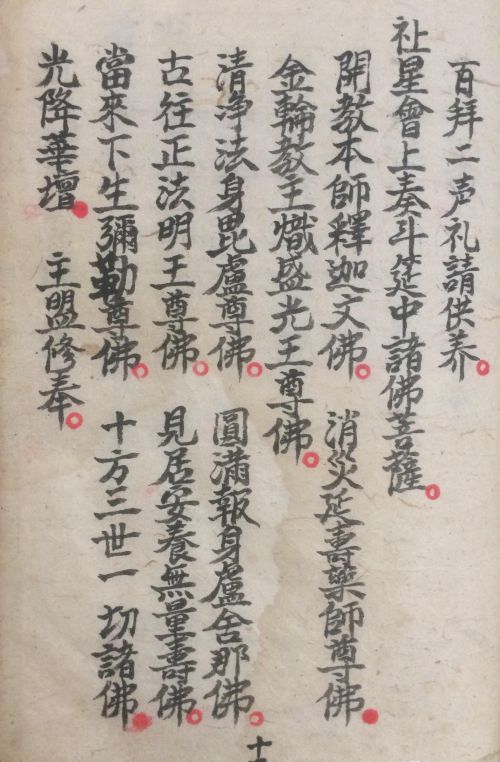 百拜二声礼請供养
祉星會上奏斗筵中諸佛菩薩
開教本師釋迦文佛　消災延壽藥師尊佛
金輪教主熾盛光王尊佛
清浄法身毘盧尊佛　圓滿報身盧舍那佛
古往正法明王尊佛　見居安養無量壽佛
當來下生彌勒尊佛　十方三世一切諸佛
光降華壇　主盟修奉